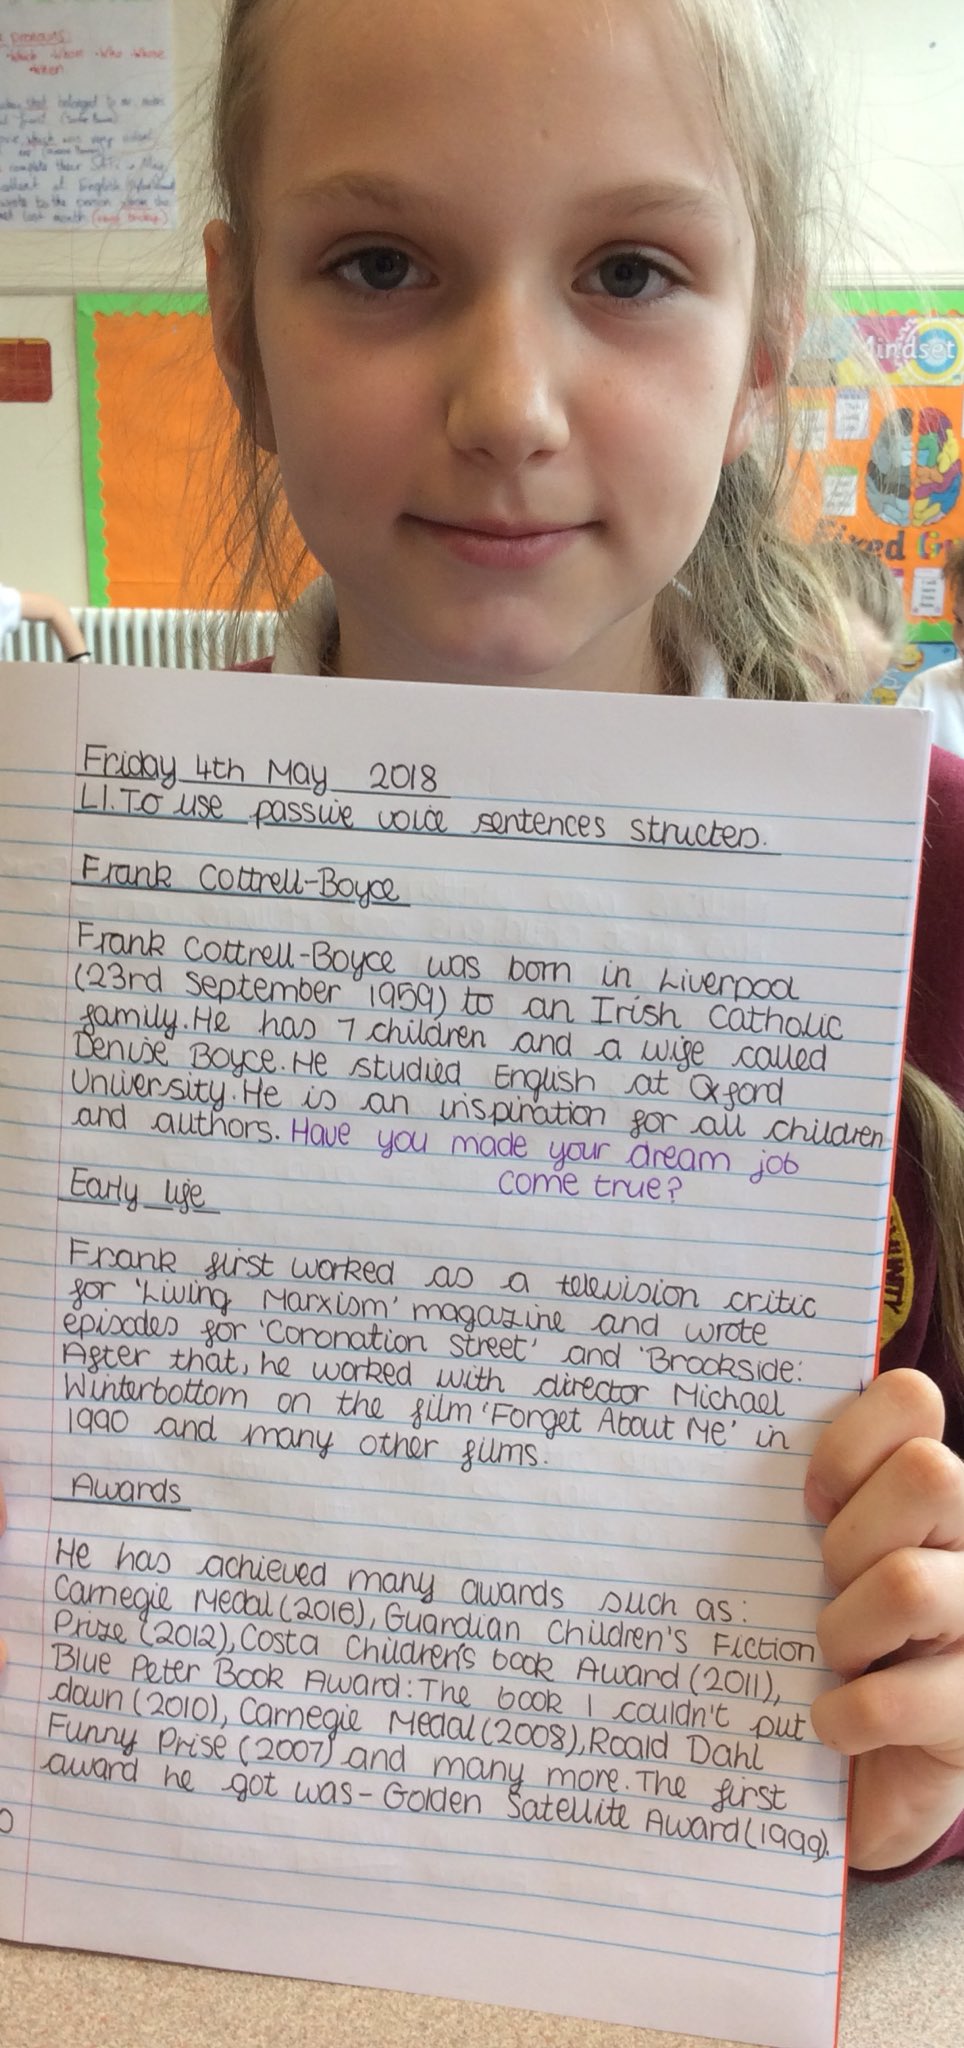 pronouns
Which Whom Who Whose
When
that belonged to
which was very
complete their SATs in May
at English
wrote to the person
last month
Mindset
Fixed
Friday 4th May 2018
LI. To use passive voice sentences structers.
Frank Cottrell-Boyce
Frank Cottrell-Boyce was born in Liverpool
(23rd September 1959) to an Irish Catholic
family. He has 7 children and a wife called
Denise Boyce. He studied English at Oxford
University. He is an inspiration for all children
and authors. Have you made your dream job
come true?
Early life
Frank first worked as a television critic
for 'Living Marxism' magazine and wrote
episodes for 'Coronation Street' and 'Brookside'.
After that, he worked with director Michael
Winterbottom on the film 'Forget About Me' in
1990 and many other films.
Awards
He has achieved many awards such as:
Carnegie Medal (2016), Guardian Children's Fiction
Prize (2012), Costa Children's book Award (2011),
Blue Peter Book Award: The book I couldn't put
down (2010), Carnegie Medal (2008), Roald Dahl
Funny Prise (2007) and many more. The first
award he got was - Golden Satellite Award (1999).